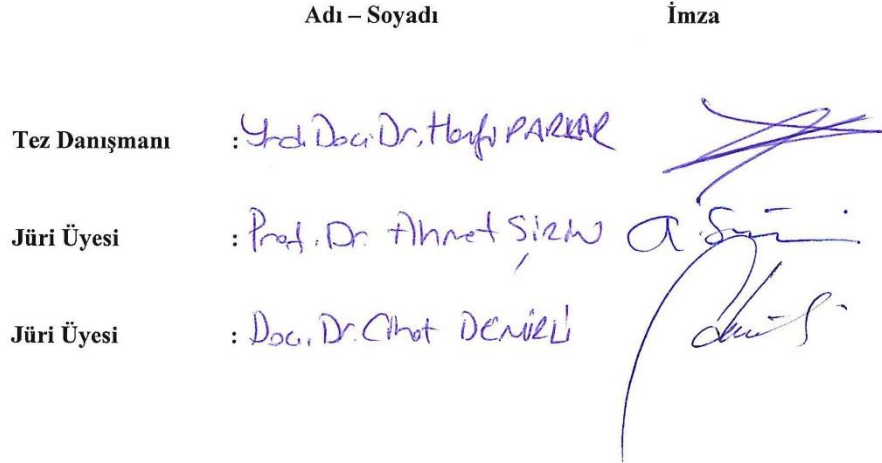 Adı – Soyadı İmza
Tez Danışmanı : Yrd. Doç. Dr. PARLAR
Jüri Üyesi : Prof. Dr. Ahmet ŞİRİN A. Şirin
Jüri Üyesi : Doç. Dr. Cihat DEMİRLİ